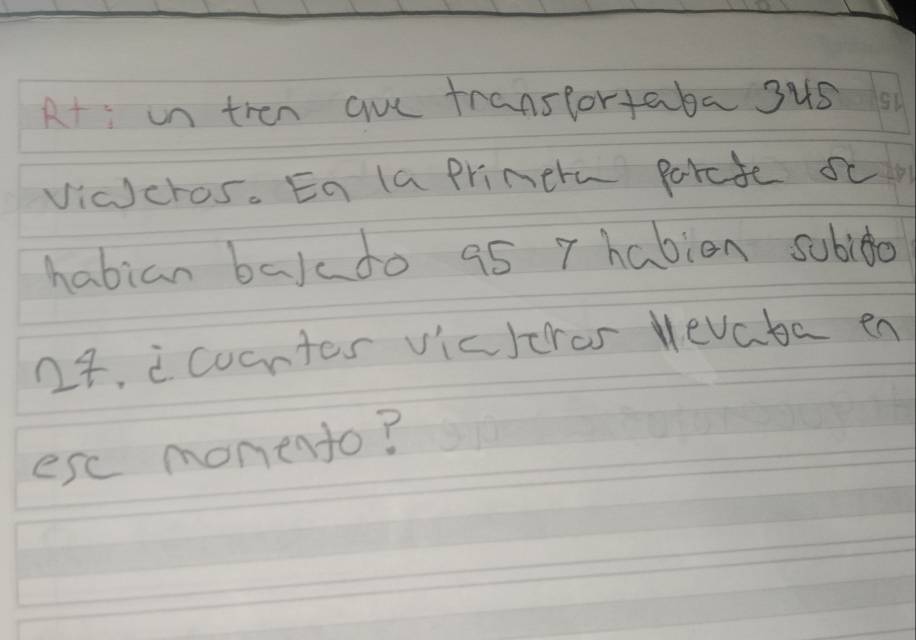 Rt: un tren que transportaba 345
viajeros. En la Primera parada se
habian bajado 95 y habian subido
27. ¿cuantos viajeros llevaba en
ese momento?